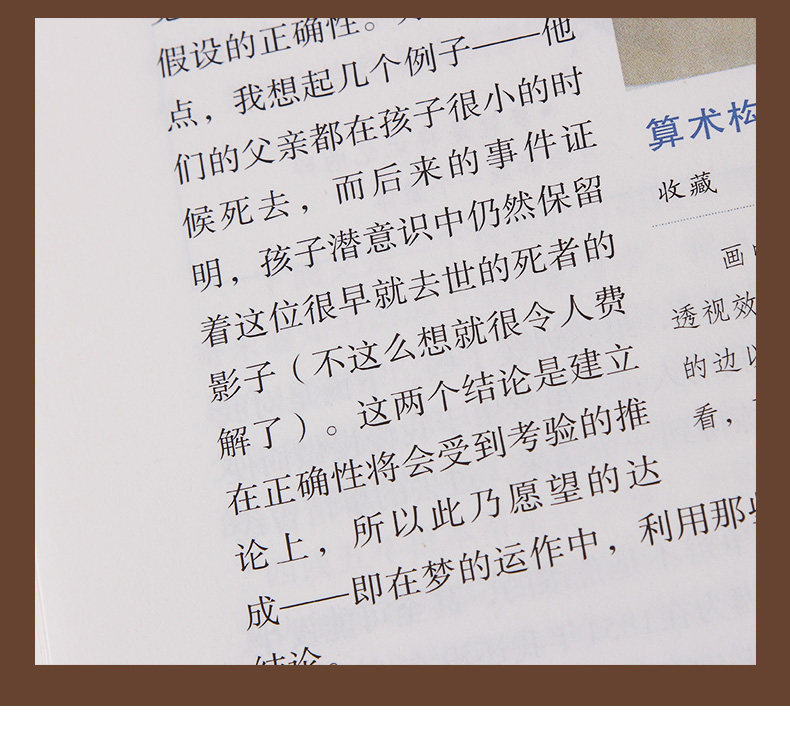 假设的正确性。
点，我想起几个例子——他
们的父亲都在孩子很小的时
候死去，而后来的事件证
明，孩子潜意识中仍然保留
着这位很早就去世的死者的
影子（不这么想就很令人费
解了）。这两个结论是建立
在正确性将会受到考验的推
论上，所以此乃愿望的达
成——即在梦的运作中，利用那些
结论。
算术构
收藏
画
透视效
的边以
看，